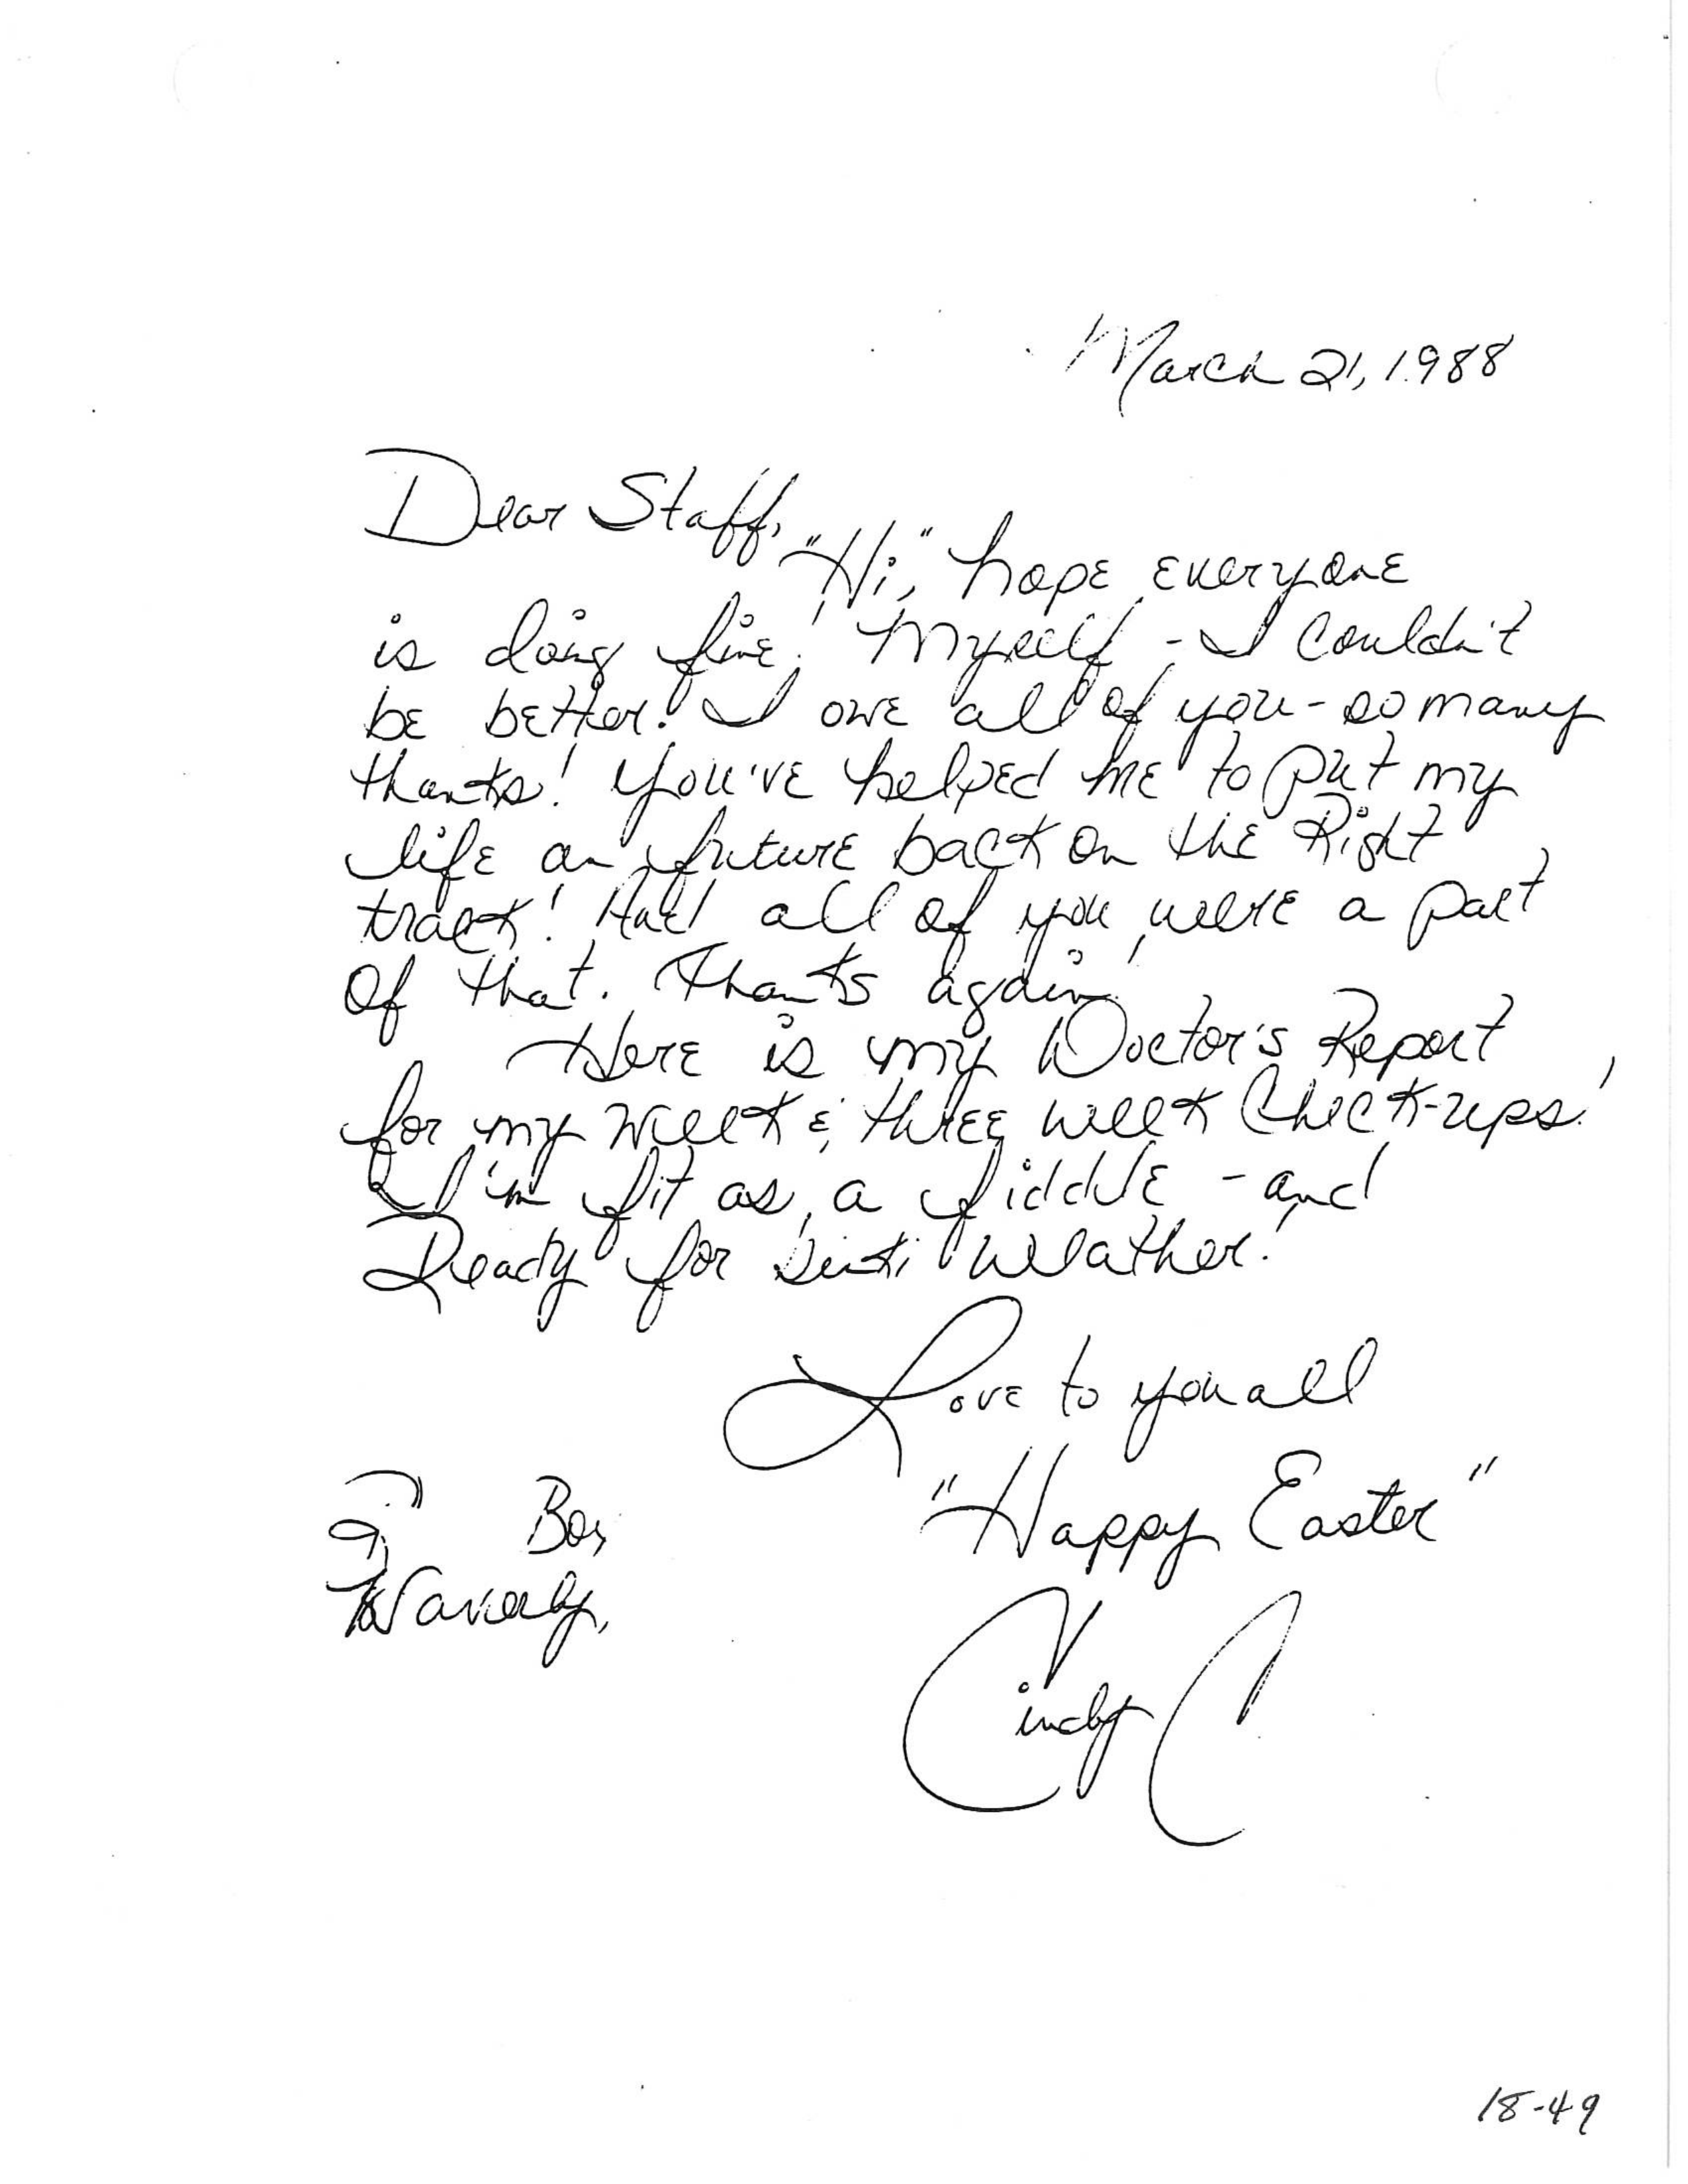 March 21, 1988
Dear Staff,
"Hi," hope everyone
is doing fine! Myself - I couldn't
be better! I owe all of you - so many
thanks! You've helped me to put my
life an future back on the Right
track! And all of you were a part
of that. Thanks again!
Here is my Doctor's Report
for my week & three week Check-ups!
I'm fit as a fiddle - and
Ready for weather!
Love to you all
"Happy Easter"
Box
Waverly,
Cindy C
18-49